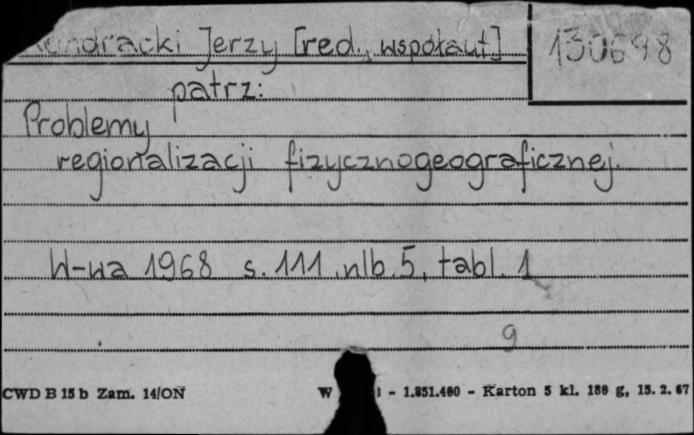 Kondracki Jerzy [red., współaut] 130698
patrz:
Problemy
regionalizacji fizycznogeograficznej.
W-wa 1968 s. 111, nlb. 5, tabl. 1
9
CWD B 15 b Zam. 14/ON W - 1.851.400 - Karton 5 kl. 180 g, 15. 2. 67